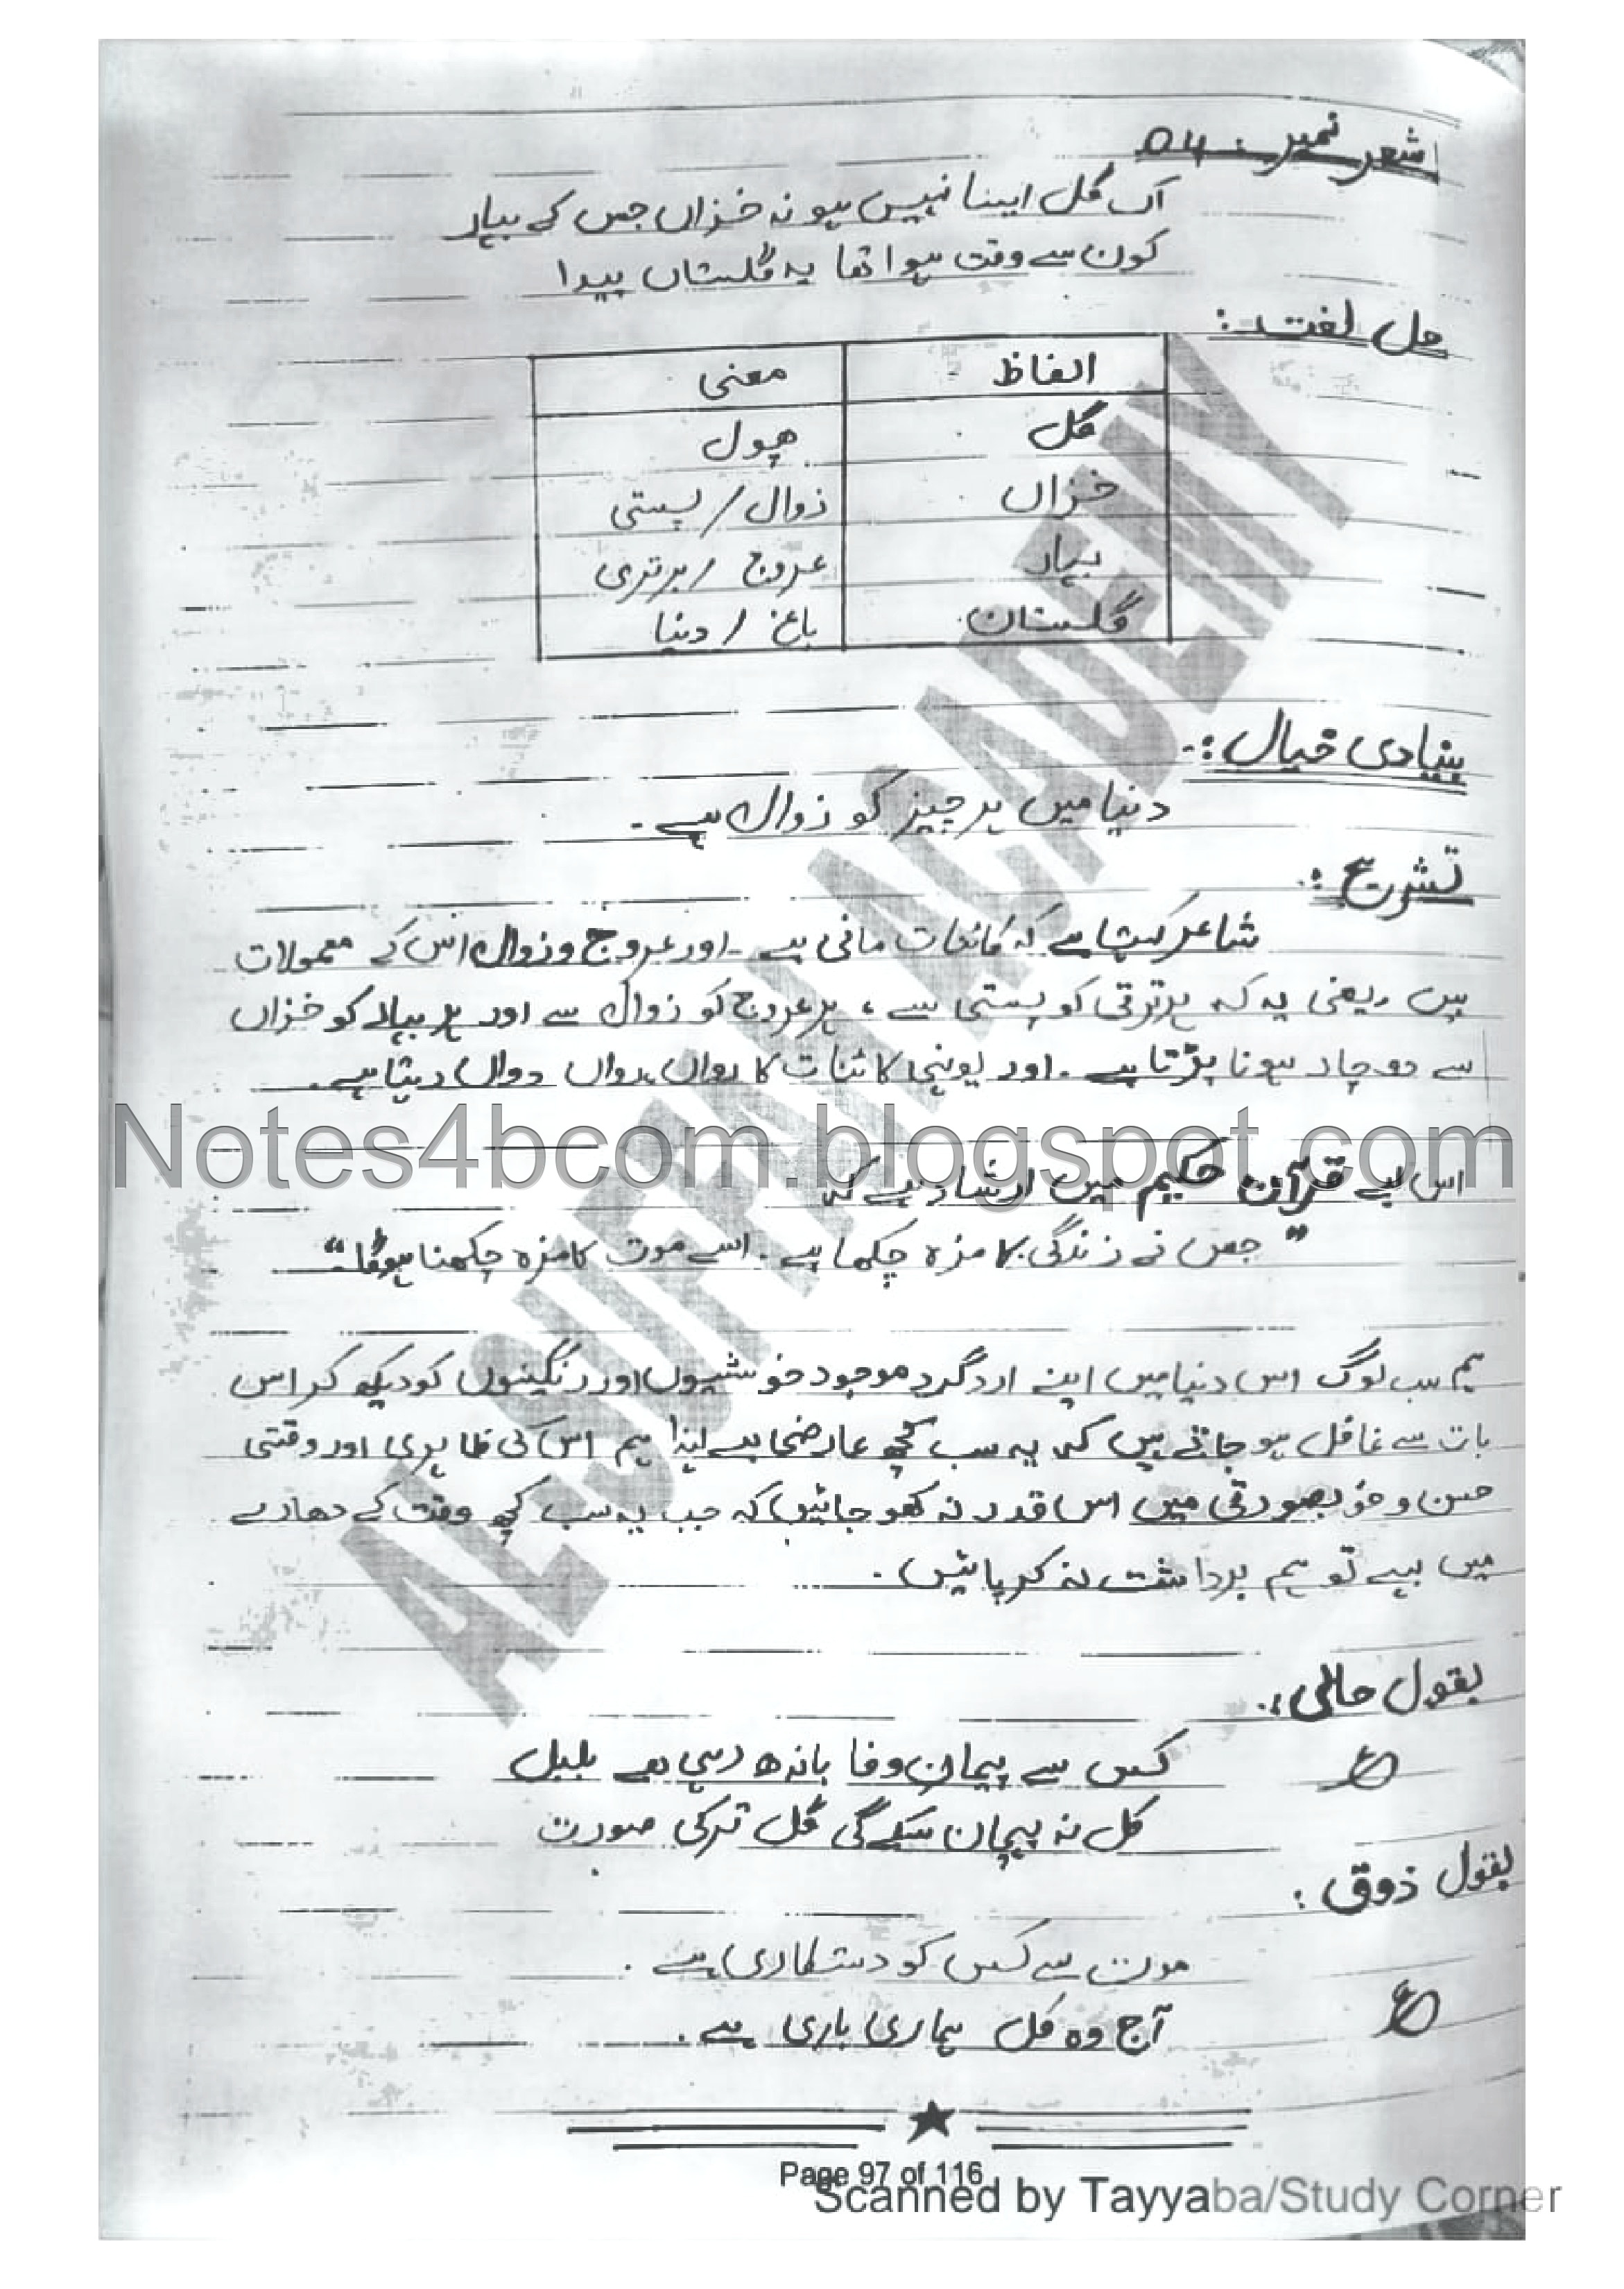 شعر نمبر: 04
اک گل ایسا نہیں ہو نہ خزاں جس کے بہار
کون سے وقت ہوا تھا یہ گلستاں پیدا
حل لغت:
الفاظ معنی
گل پھول
خزاں زوال / پستی
بہار عروج / برتری
گلستان باغ / دنیا
بنیادی خیال:-
دنیا میں ہر چیز کو زوال ہے۔
تشریح:
شاعر کہتا ہے کہ کائنات فانی ہے۔ اور عروج و زوال اس کے معمولات
ہیں یعنی یہ کہ ہر ترقی کو پستی سے، ہر عروج کو زوال سے اور ہر بہار کو خزاں
سے دو چار ہونا پڑتا ہے۔ اور یونہی کائنات کا رواں رواں دواں رہتا ہے۔
Notes4bcom.blogspot.com
اس لیے قرآن حکیم میں ارشاد ہے کہ
"جس نے زندگی کا مزہ چکھا ہے۔ اسے موت کا مزہ چکھنا ہوگا"
ہم سب لوگ اس دنیا میں اپنے ارد گرد موجود خوشیوں اور رنگینوں کو دیکھ کر اس
بات سے غافل ہو جاتے ہیں کہ یہ سب کچھ عارضی ہے لہذا ہم اس کی ظاہری اور وقتی
حسن و خوبصورتی میں اس قدر نہ کھو جائیں کہ جب یہ سب کچھ وقت کے دھارے
میں بہے تو ہم برداشت نہ کر پائیں۔
بقول حالی:
کس سے پیمان وفا باندھ رہی ہے بلبل
کل نہ پہچان سکے گی گل تر کی صورت
بقول ذوق:
موت سے کس کو رستگاری ہے۔
آج وہ کل ہماری باری ہے۔
AL SUFFAH ACADEMY
Page 97 of 116
Scanned by Tayyaba/Study Corner